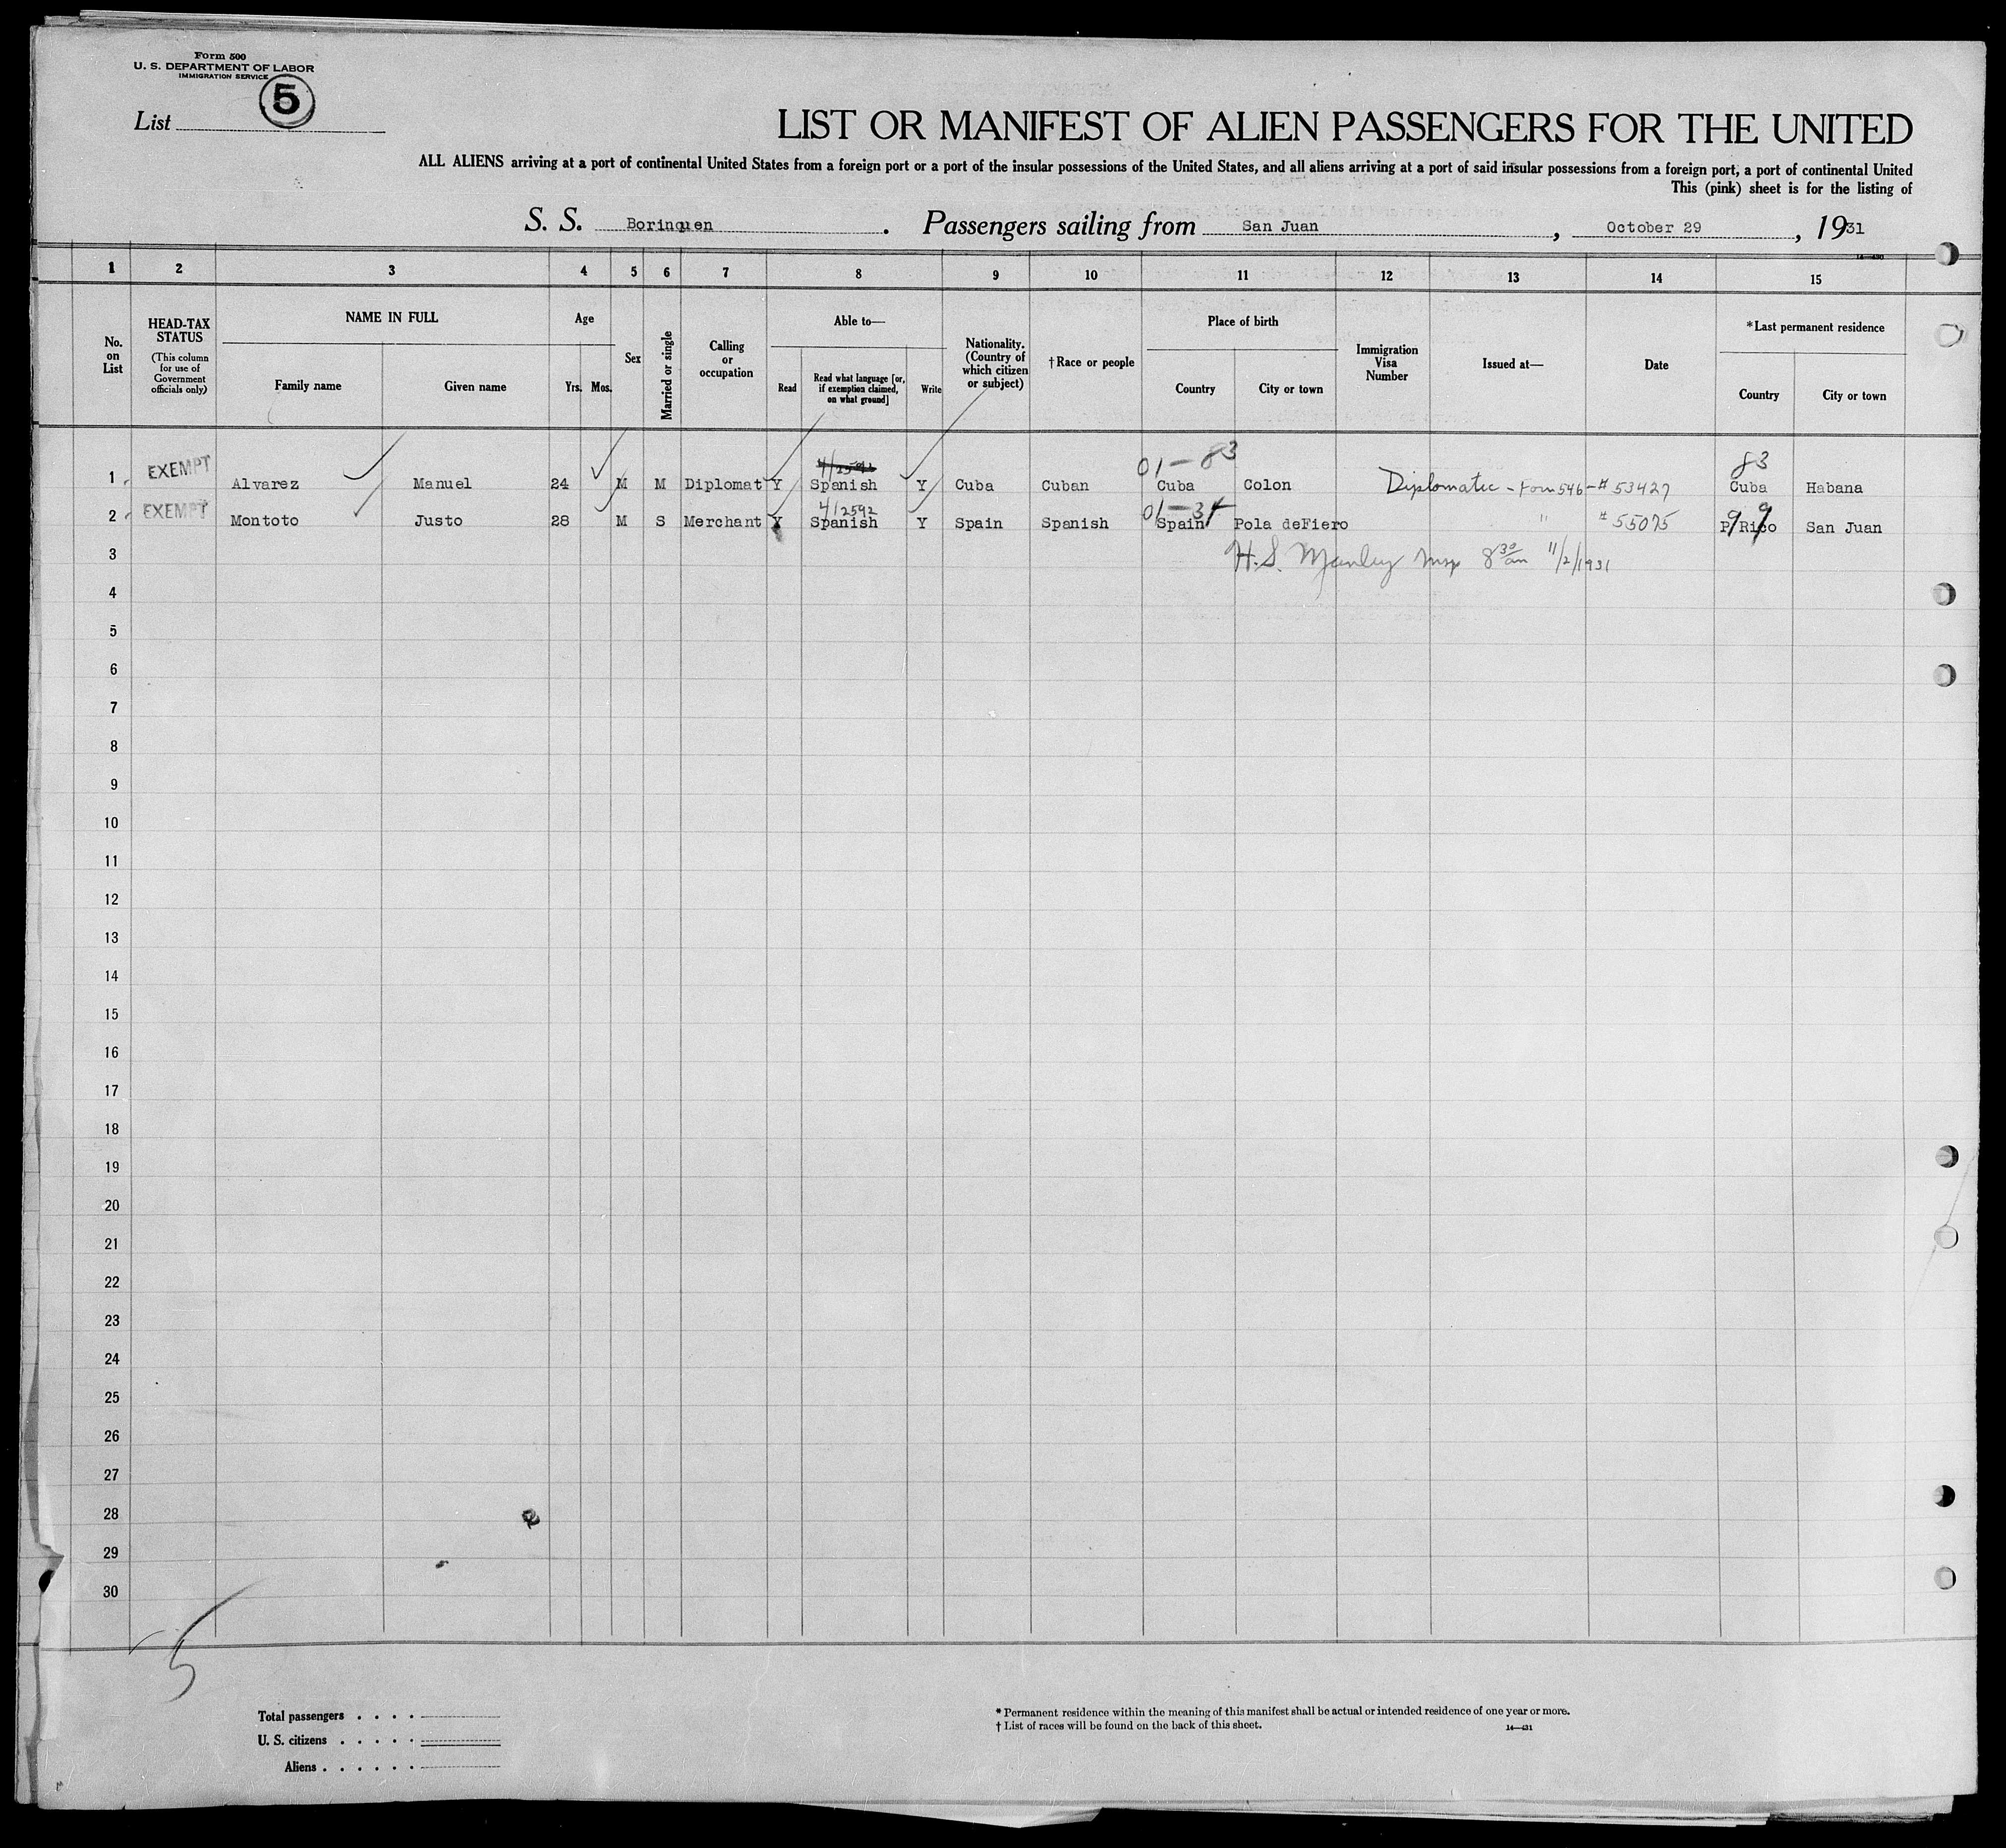 Form 500
U. S. DEPARTMENT OF LABOR
IMMIGRATION SERVICE
List 5
LIST OR MANIFEST OF ALIEN PASSENGERS FOR THE UNITED
ALL ALIENS arriving at a port of continental United States from a foreign port or a port of the insular possessions of the United States, and all aliens arriving at a port of said insular possessions from a foreign port, a port of continental United
This (pink) sheet is for the listing of
S. S. Borinquen. Passengers sailing from San Juan, October 29, 1931
14—430
1 2 3 4 5 6 7 8 9 10 11 12 13 14 15
No. on List
HEAD-TAX STATUS
(This column for use of Government officials only)
NAME IN FULL
Family name Given name
Age
Yrs. Mos.
Sex
Married or single
Calling or occupation
Able to—
Read
Read what language [or, if exemption claimed, on what ground]
Write
Nationality. (Country of which citizen or subject)
†Race or people
Place of birth
Country City or town
Immigration Visa Number
Issued at—
Date
*Last permanent residence
Country City or town
01-83 83
1 EXEMPT Alvarez Manuel 24 M M Diplomat Y Spanish Y Cuba Cuban Cuba Colon Diplomatic - Form 546 - # 53427 Cuba Habana
4/2592 01-34 99
2 EXEMPT Montoto Justo 28 M S Merchant Y Spanish Y Spain Spanish Spain Pola deFiero " # 55075 P Rico San Juan
3 H. S. Manley Insp 8 30 am 11/2/1931
4
5
6
7
8
9
10
11
12
13
14
15
16
17
18
19
20
21
22
23
24
25
26
27
28
29
30
5
Total passengers . . . .
U. S. citizens . . . . .
Aliens . . . . . .
* Permanent residence within the meaning of this manifest shall be actual or intended residence of one year or more.
† List of races will be found on the back of this sheet.
14—431